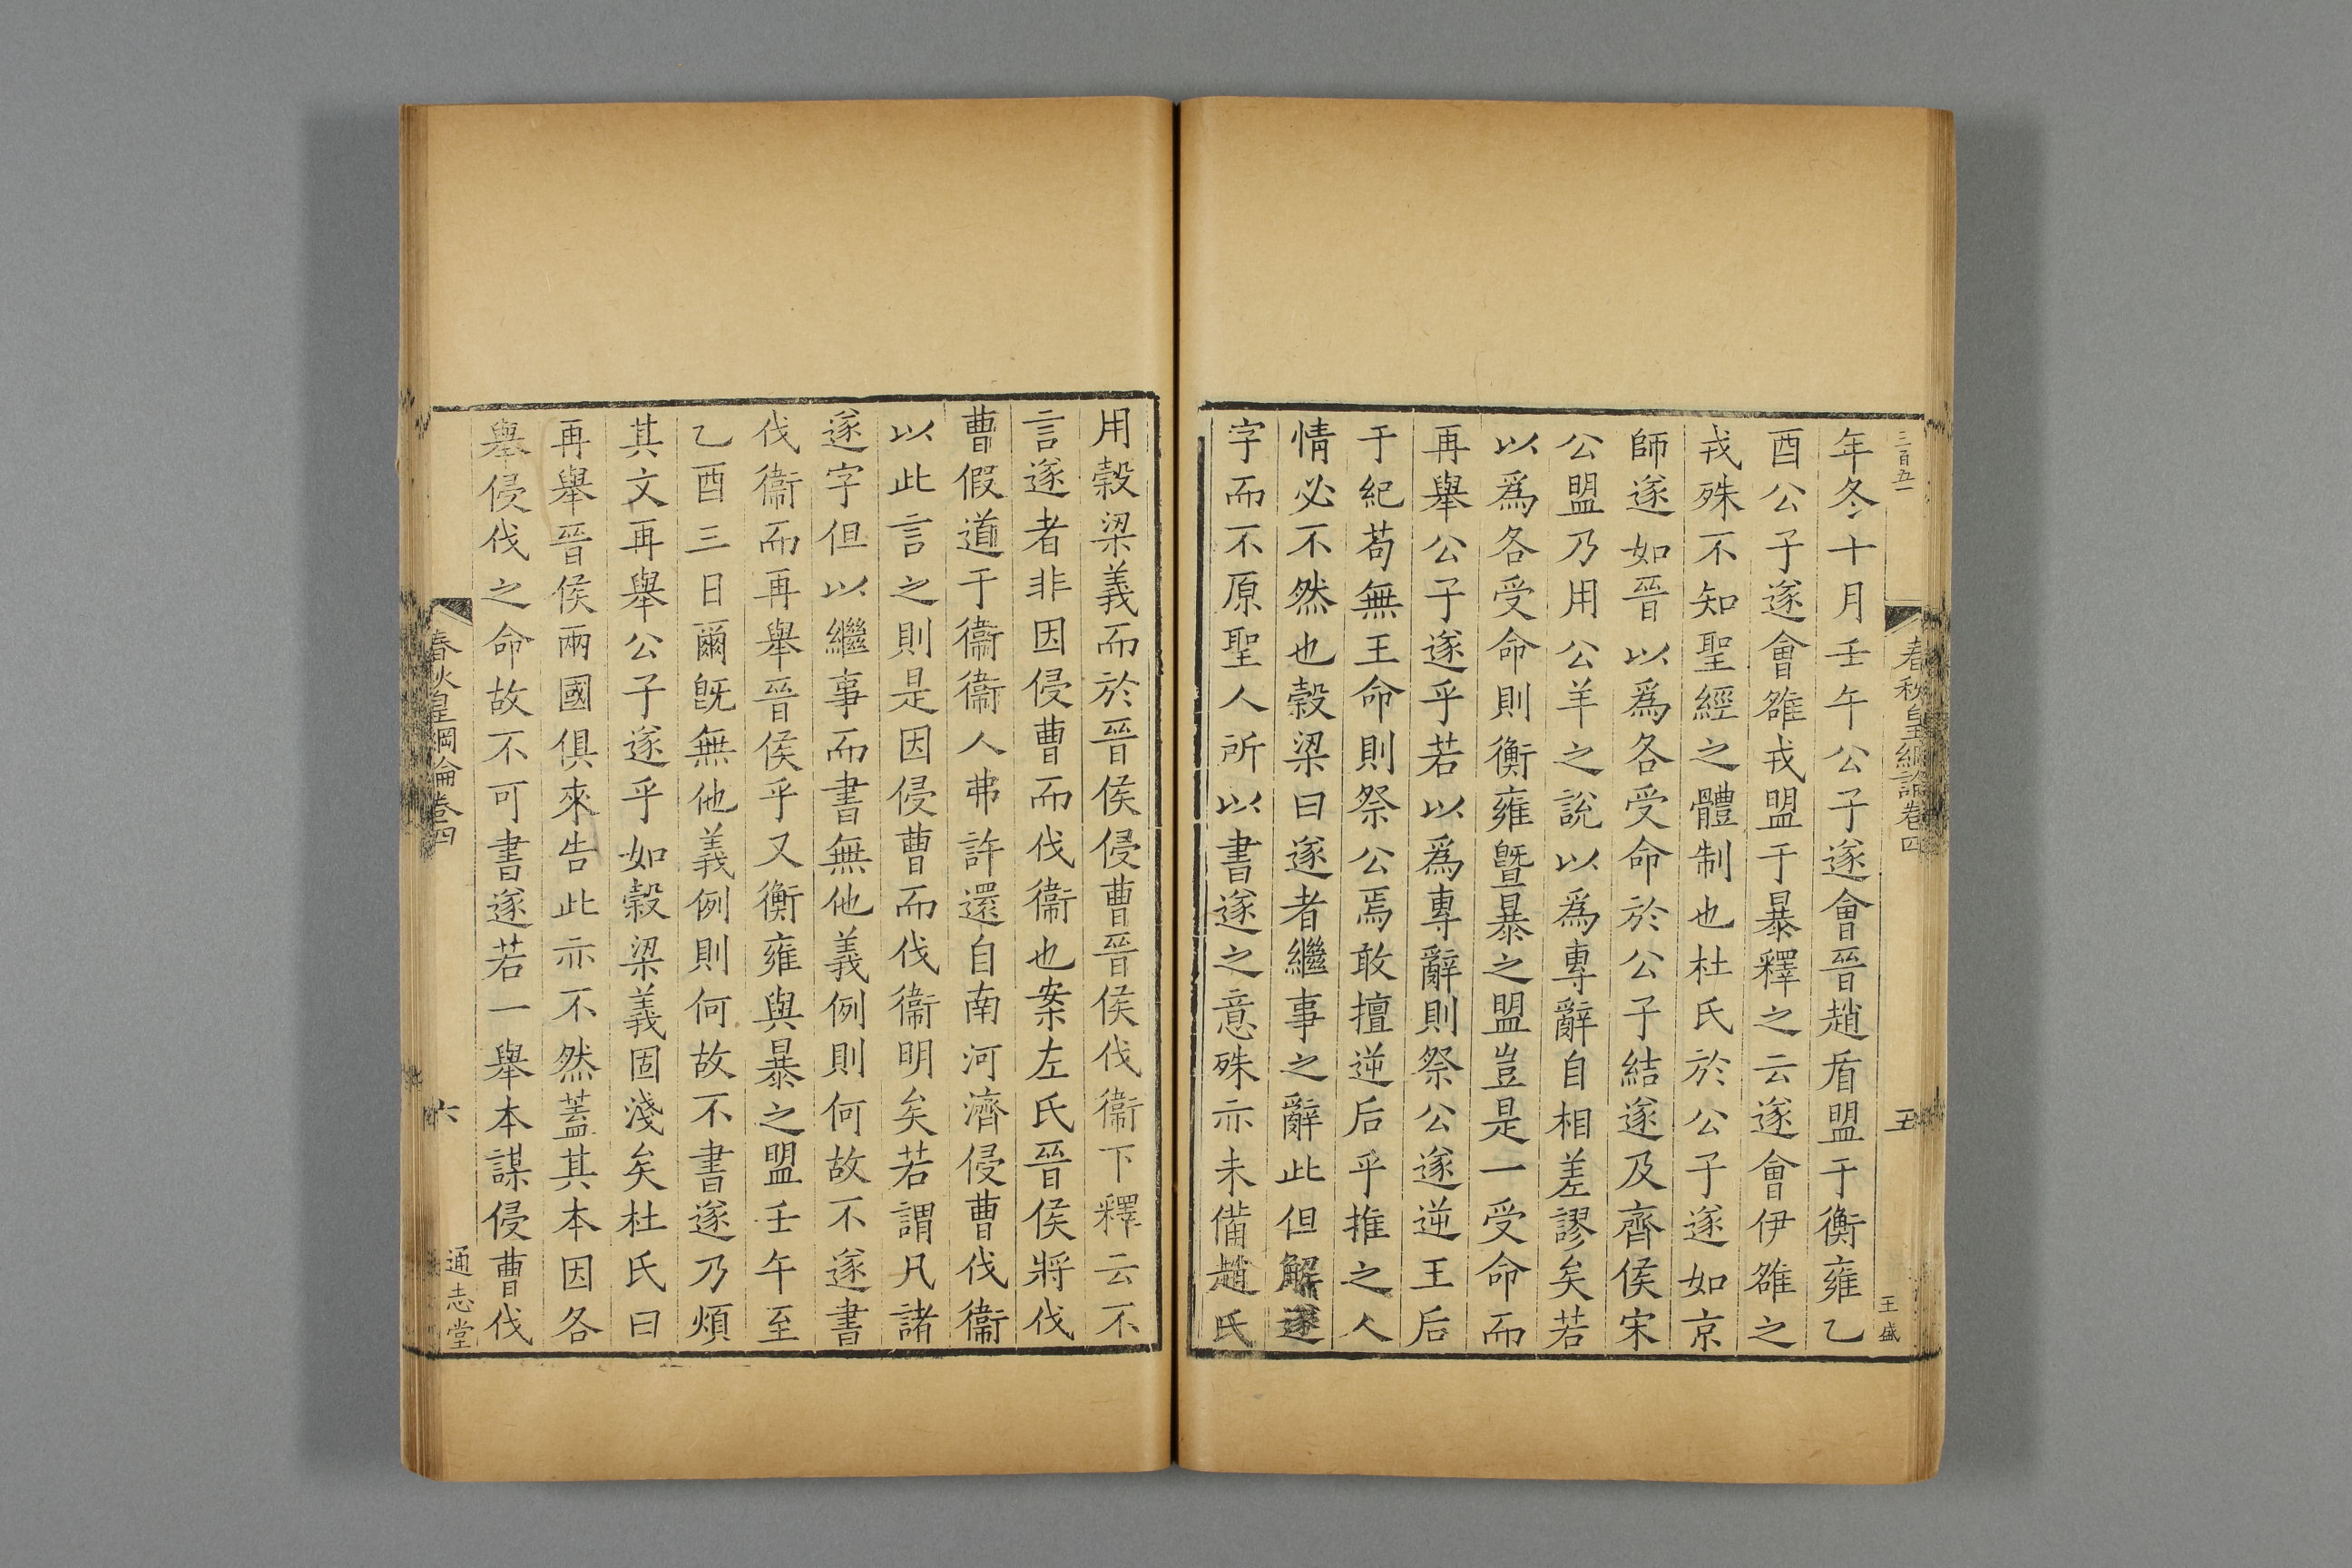 三百五一
春秋皇綱論卷四
五
王盛
年冬十月壬午公子遂會晉趙盾盟于衡雍乙
酉公子遂會雒戎盟于暴釋之云遂會伊雒之
戎殊不知聖經之體制也杜氏於公子遂如京
師遂如晉以爲各受命於公子結遂及齊侯宋
公盟乃用公羊之說以爲專辭自相差謬矣若
以爲各受命則衡雍曁暴之盟豈是一受命而
再舉公子遂乎若以爲專辭則祭公遂逆王后
于紀苟無王命則祭公焉敢擅逆后乎推之人
情必不然也穀梁曰遂者繼事之辭此但解遂
字而不原聖人所以書遂之意殊亦未備趙氏
用穀梁義而於晉侯侵曹晉侯伐衞下釋云不
言遂者非因侵曹而伐衞也案左氏晉侯將伐
曹假道于衞衞人弗許還自南河濟侵曹伐衞
以此言之則是因侵曹而伐衞明矣若謂凡諸
遂字但以繼事而書無他義例則何故不遂書
伐衞而再舉晉侯乎又衡雍與暴之盟壬午至
乙酉三日爾旣無他義例則何故不書遂乃煩
其文再舉公子遂乎如穀梁義固淺矣杜氏曰
再舉晉侯兩國俱來告此亦不然蓋其本因各
舉侵伐之命故不可書遂若一舉本謀侵曹伐
春秋皇綱論卷四
六
通志堂